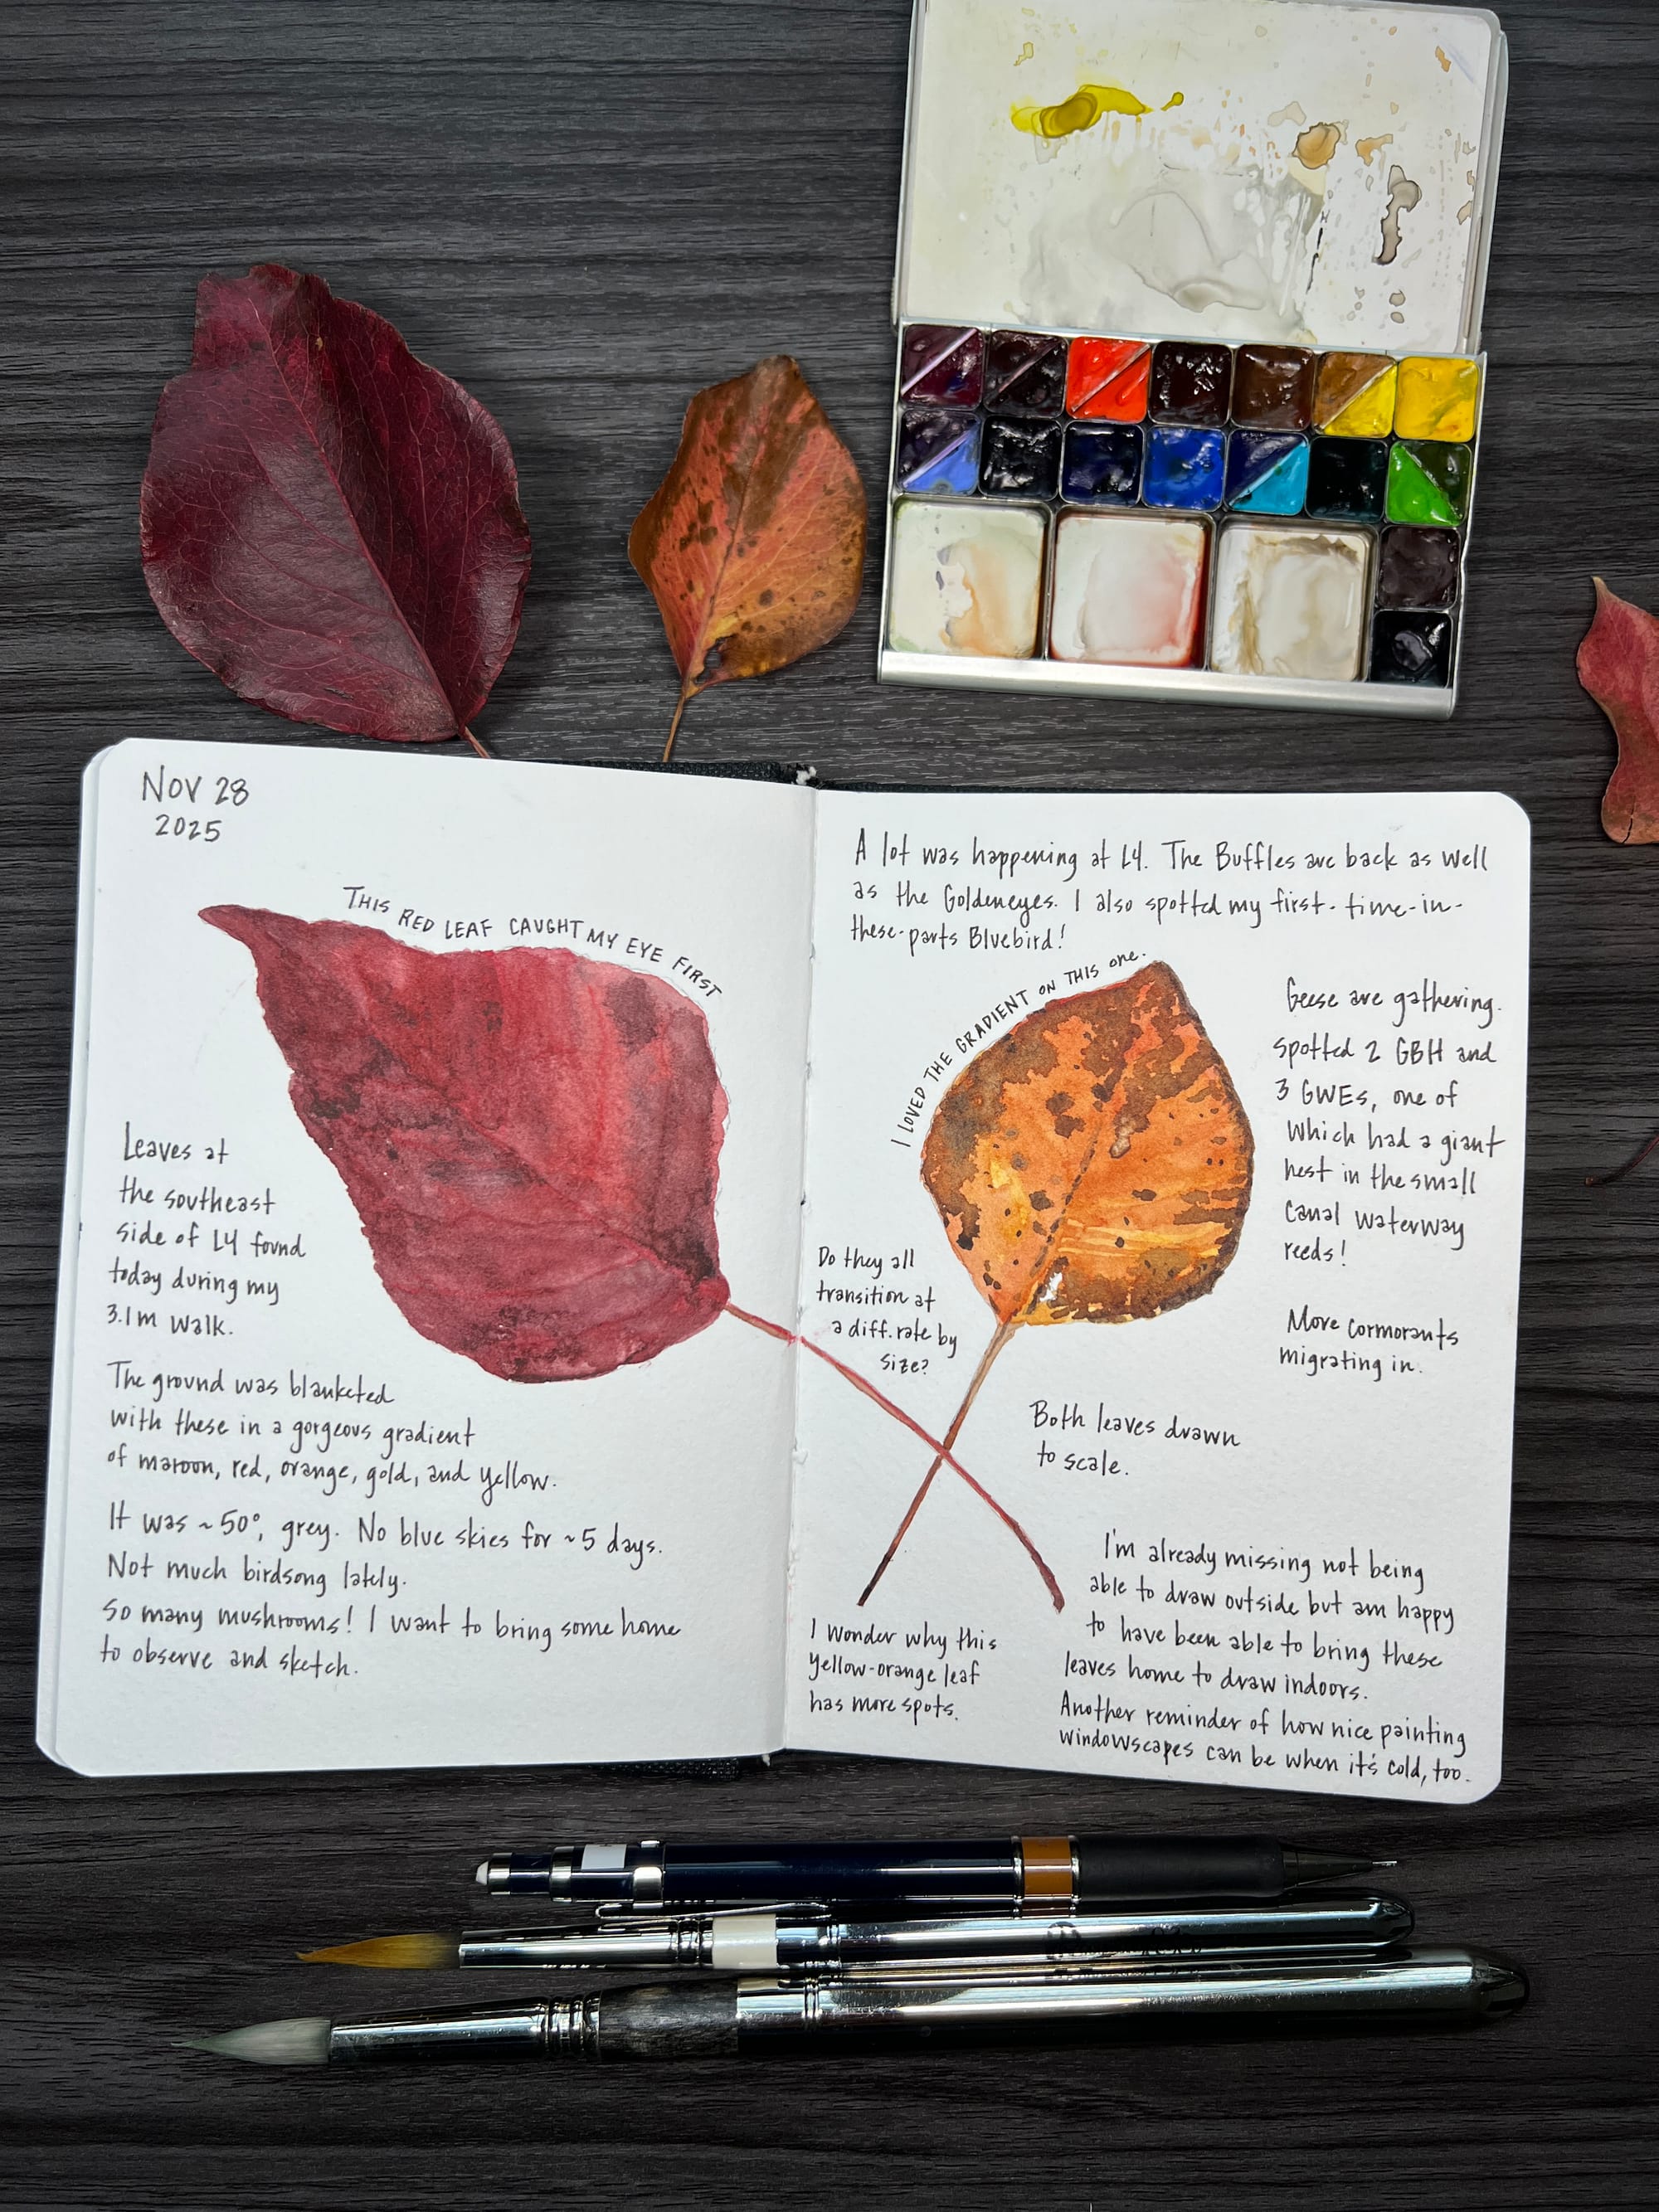 Nov 28
2025
THIS RED LEAF CAUGHT MY EYE FIRST
Leaves at
the southeast
side of L4 found
today during my
3.1m walk.
The ground was blanketed
with these in a gorgeous gradient
of maroon, red, orange, gold, and yellow.
It was ~50°, grey. No blue skies for ~5 days.
Not much birdsong lately.
So many mushrooms! I want to bring some home
to observe and sketch.
A lot was happening at L4. The Buffles are back as well
as the Goldeneyes. I also spotted my first-time-in-
these-parts Bluebird!
I LOVED THE GRADIENT ON THIS one.
Geese are gathering.
Spotted 2 GBH and
3 GWEs, one of
which had a giant
nest in the small
canal waterway
reeds!
Do they all
transition at
a diff. rate by
size?
More cormorants
migrating in.
Both leaves drawn
to scale.
I wonder why this
yellow-orange leaf
has more spots.
I'm already missing not being
able to draw outside but am happy
to have been able to bring these
leaves home to draw indoors.
Another reminder of how nice painting
windowscapes can be when it's cold, too.